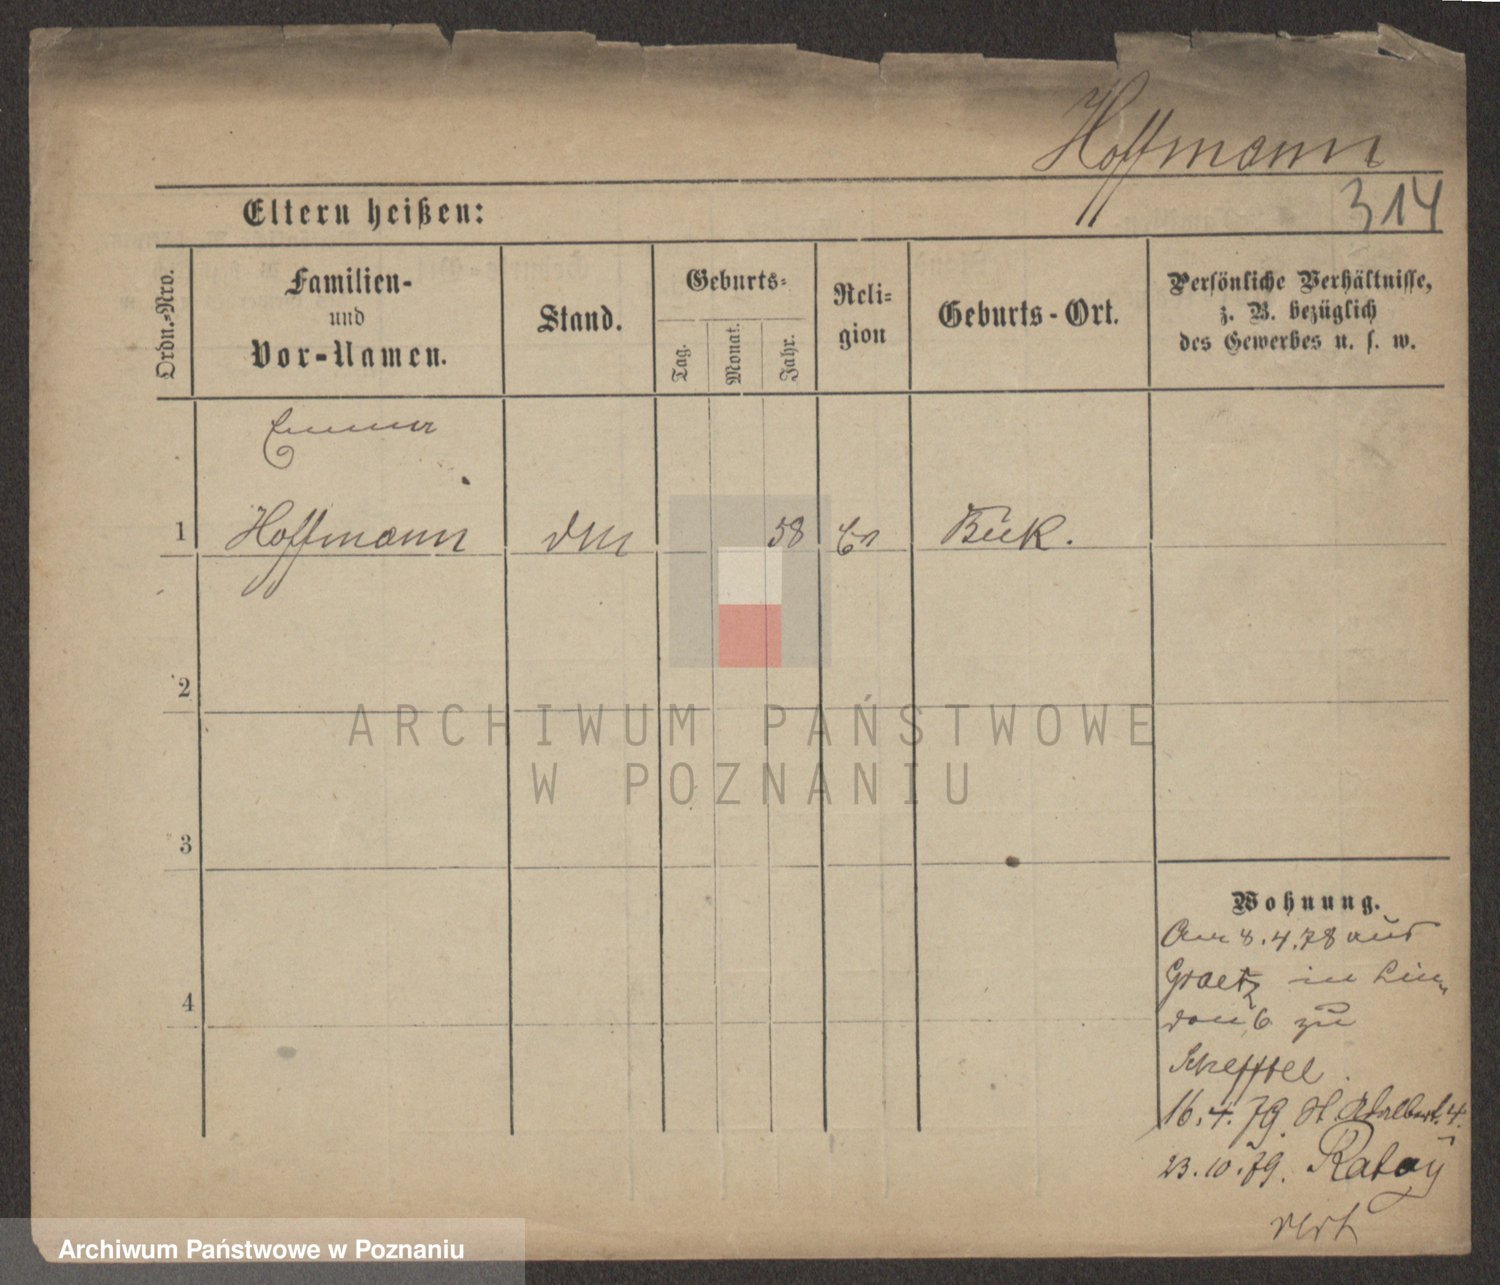 Hoffmann
314
Eltern heißen:
Ordn.-Nro.
Familien-
und
Vor-Namen.
Stand.
Geburts-
Tag.
Monat.
Jahr.
Reli-
gion
Geburts-Ort.
Persönliche Verhältnisse,
z. B. bezüglich
des Gewerbes u. s. w.
Emma
1 Hoffmann 58 Ev Buk.
2
ARCHIWUM PAŃSTWOWE
W POZNANIU
3
Wohnung.
Am 8.4.78 aus
Graetz in Lin
den 6 zu
Scheffel
16.4.79. St. Adalbert. 4.
23.10.79. Ratay
4
Archiwum Państwowe w Poznaniu